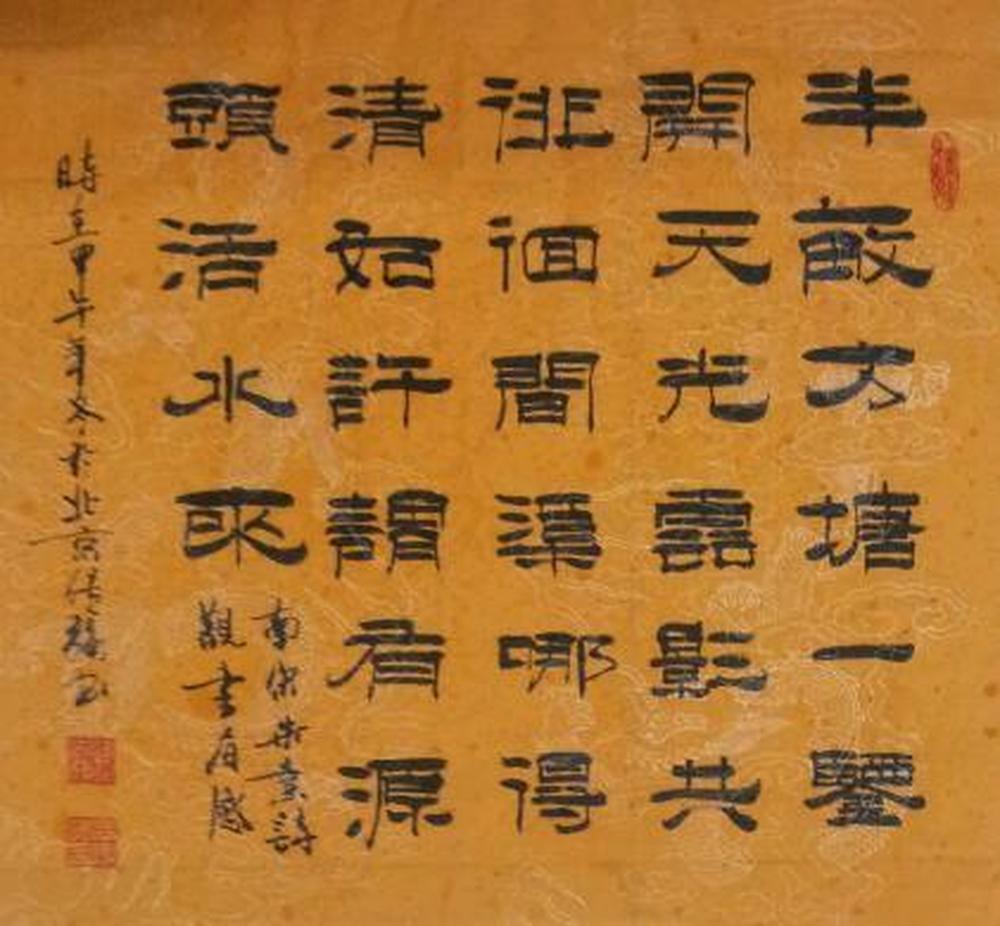 半畝方塘一鑒
開天光雲影共
徘徊間渠哪得
清如許謂有源
頭活水來
南宋朱熹詩
觀書有感
時在甲午年冬於北京書